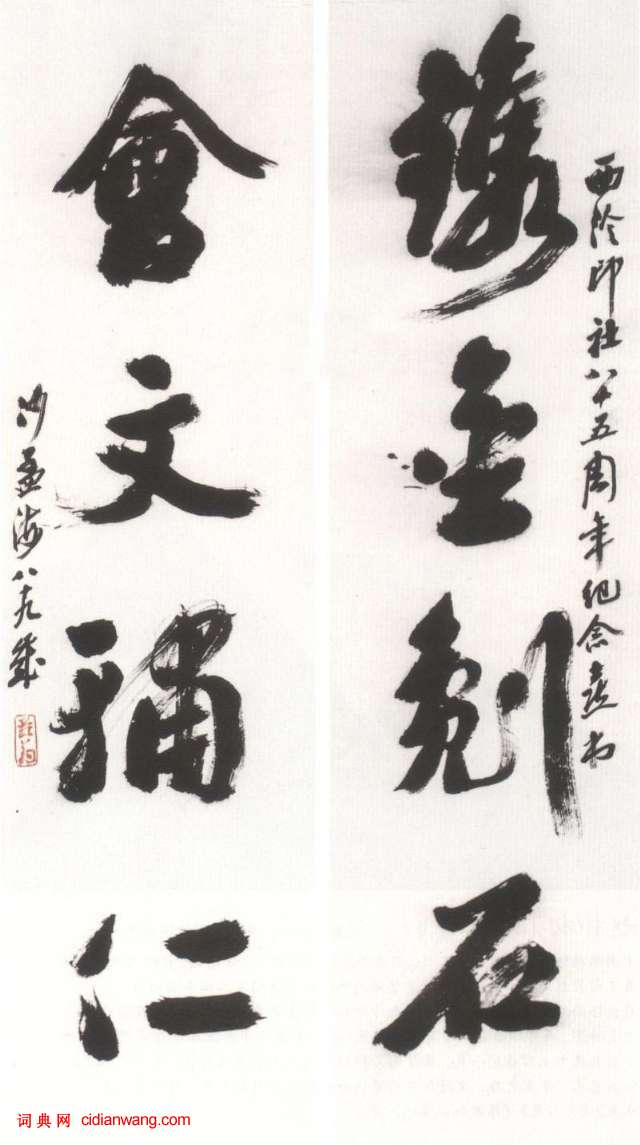 西泠印社八十五周年纪念嘱书
镂金刻石
會文補仁
沙孟海八十九歲
词典网 cidianwang.com